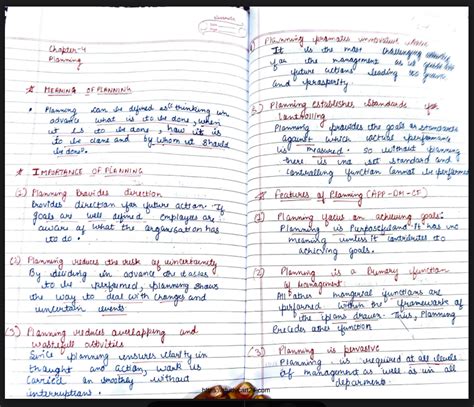 Chapter-4
Planning
* MEANING OF PLANNING
• Planning can be defined as "thinking in
advance what is to be done, when
it is to be done, how it is
to be done and by whom it should
be done".
* IMPORTANCE OF PLANNING
(1) Planning Provides direction
Provides direction for future action. If
goals are well defined, employees are
aware of what the organisation has
to do.
(2) Planning reduces the risk of uncertainty
By deciding in advance the tasks
to be performed, planning shows
the way to deal with changes and
uncertain events
(3) Planning reduces overlapping and
wasteful activities
Since planning ensures clarity in
thought and action, work is
carried on smoothly without
interruptions.
Planning promotes innovative ideas
It is the most challenging activity
for the management as it guides
future actions leading to growth
and prosperity.
5.) Planning establishes standards for
controlling
Planning provides the goals or standards
against which actual performance
is measured. So without planning
there is no set standard and
controlling function cannot be performed
* Features of Planning (APP-
(1) Planning focus on achieving goals:
Planning is Purposeful and it has no
meaning unless it contributes to
achieving goals.
(2) Planning is a Primary function
of Management
All other managerial functions are
performed within the framework of
the plans drawn. Thus, Planning
Precedes other function
(3) Planning is pervasive
Planning is required at all levels
of management as well as in all
department.